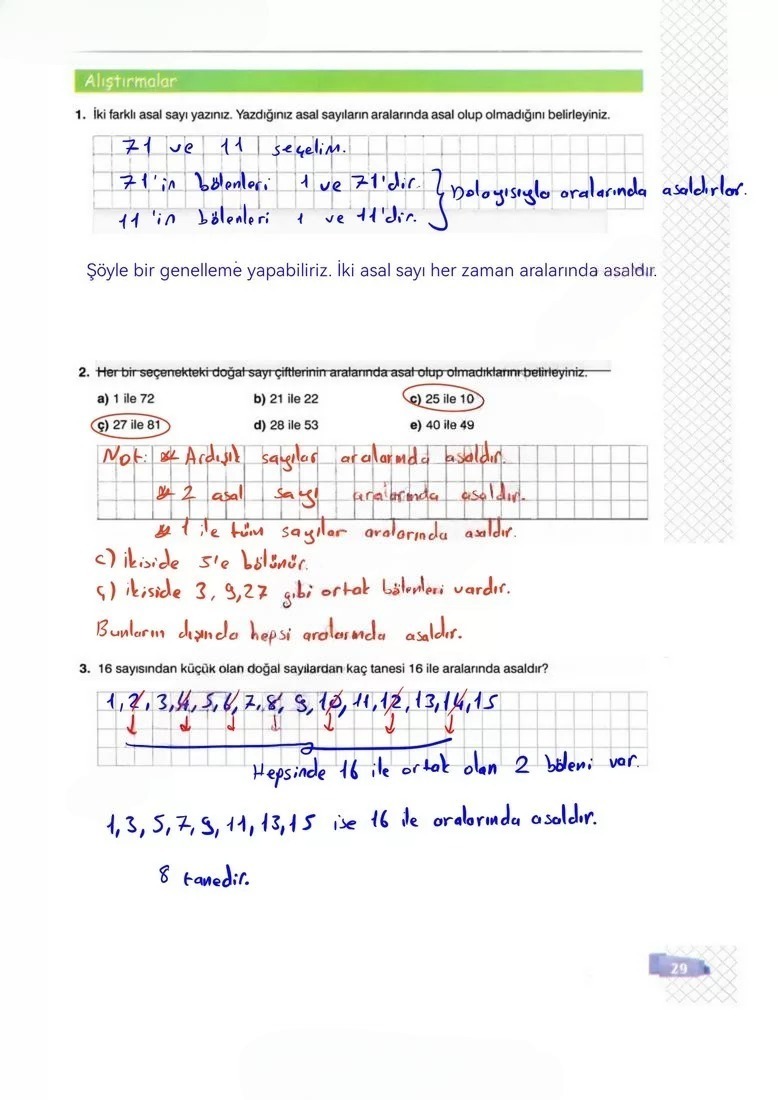 Alıştırmalar
1. İki farklı asal sayı yazınız. Yazdığınız asal sayıların aralarında asal olup olmadığını belirleyiniz.
71 ve 11 seçelim.
71'in bölenleri 1 ve 71'dir.
11'in bölenleri 1 ve 11'dir.
Dolayısıyla aralarında asaldırlar.
Şöyle bir genelleme yapabiliriz. İki asal sayı her zaman aralarında asaldır.
2. Her bir seçenekteki doğal sayı çiftlerinin aralarında asal olup olmadıklarını belirleyiniz.
a) 1 ile 72 b) 21 ile 22 c) 25 ile 10
ç) 27 ile 81 d) 28 ile 53 e) 40 ile 49
Not: * Ardışık sayılar aralarında asaldır.
* 2 asal sayı aralarında asaldır.
* 1 ile tüm sayılar aralarında asaldır.
c) ikiside 5'e bölünür.
ç) ikiside 3, 9, 27 gibi ortak bölenleri vardır.
Bunların dışında hepsi aralarında asaldır.
3. 16 sayısından küçük olan doğal sayılardan kaç tanesi 16 ile aralarında asaldır?
1, 2, 3, 4, 5, 6, 7, 8, 9, 10, 11, 12, 13, 14, 15
Hepsinde 16 ile ortak olan 2 böleni var.
1, 3, 5, 7, 9, 11, 13, 15 ise 16 ile aralarında asaldır.
8 tanedir.
29